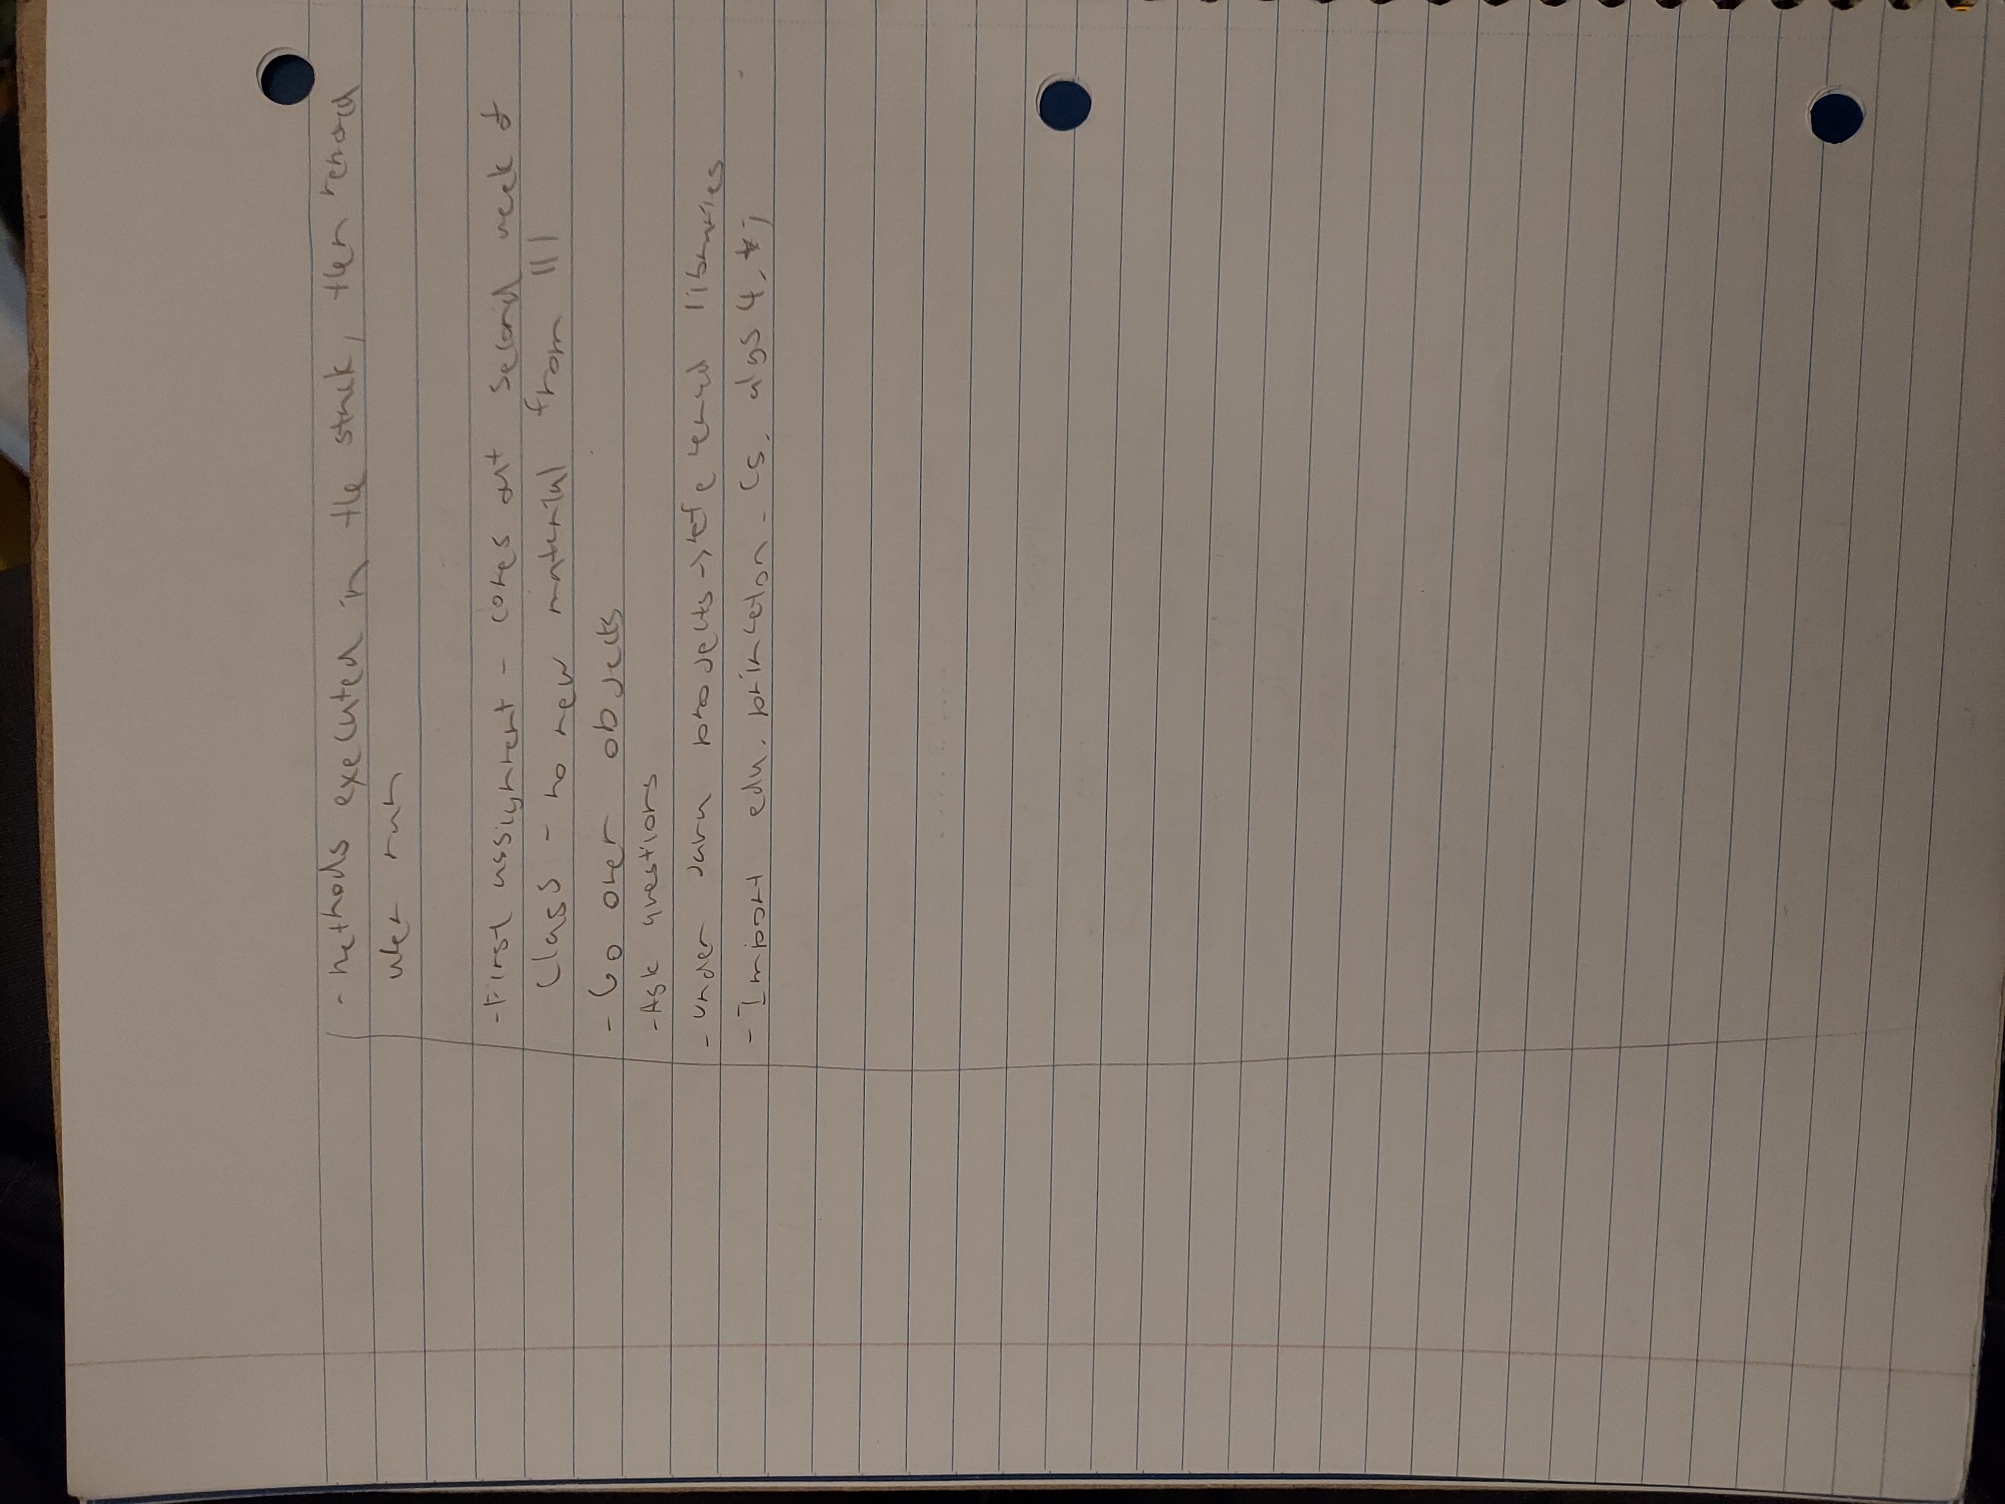 - methods executed in the stack, then removed
when run
- First assignment - comes out second week of
class - no new material from 111
- Go over objects
- Ask questions
- under Java projects -> referenced libraries
- Import edu.princeton.cs.algs4.*;